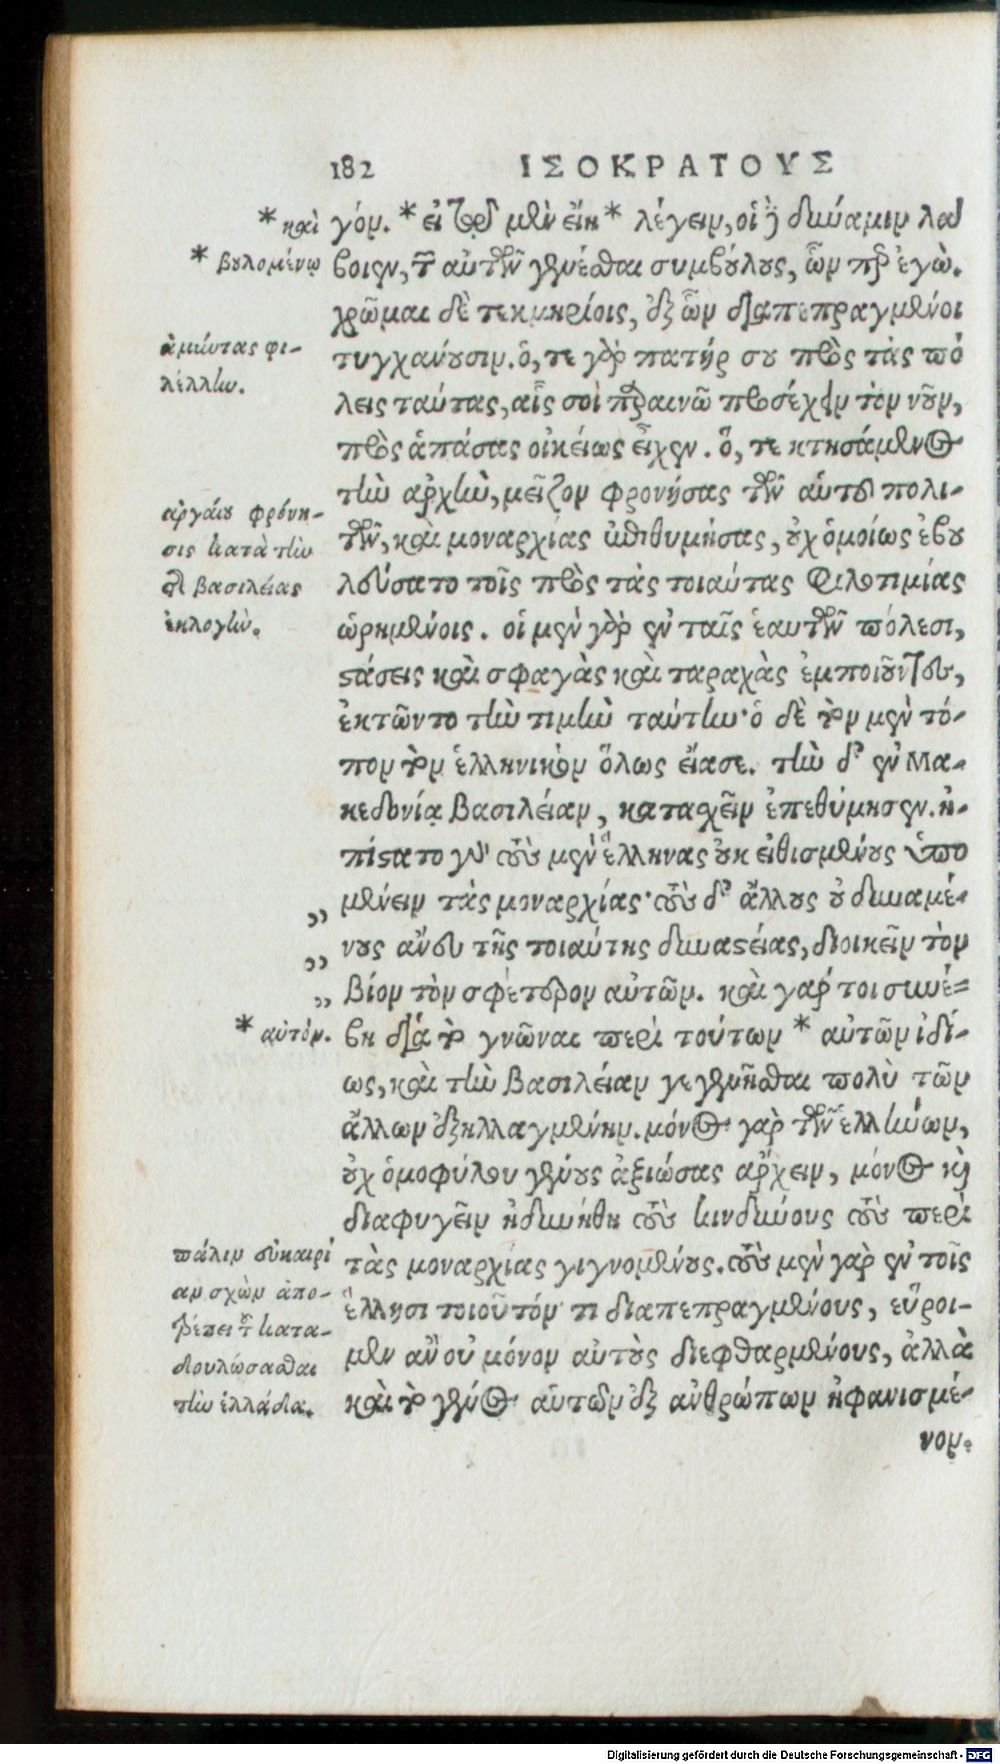 182 ΙΣΟΚΡΑΤΟΥΣ
* καὶ γόν. * εἰ μὲν εἴη * λέγειν, οἱ δύναμιν λα
* βουλομένῳ βοιεν, αὐτῶν γενέσθαι συμβούλους, ὧν περ ἐγὼ.
χρῶμαι δὲ τεκμηρίοις, ἐξ ὧν διαπεπραγμένοι
ἀμύντας φι-
τυγχάνουσιν. ὅ, τε γὰρ πατήρ σου πρὸς τὰς πό
λέλλην.
λεις ταύτας, αἷς σοὶ παραινῶ προσέχειν τὸν νοῦν,
πρὸς ἁπάσας οἰκείως εἶχεν. ὅ, τε κτησάμενος
τὴν ἀρχὴν, μεῖζον φρονήσας τῶν αὑτοῦ πολι-
ἀργαίου φρόνη-
τῶν, καὶ μοναρχίας ἐπιθυμήσας, οὐχ ὁμοίως ἐβου
σις κατὰ τὴν
λεύσατο τοῖς πρὸς τὰς τοιαύτας φιλοτιμίας
τῆς βασιλείας
ὡρημένοις. οἱ μὲν γὰρ ἐν ταῖς ἑαυτῶν πόλεσι,
ἐκλογὴν.
στάσεις καὶ σφαγὰς καὶ ταραχὰς ἐμποιοῦντες,
ἐκτῶντο τὴν τιμὴν ταύτην· ὁ δὲ τὸν μὲν τό-
πον τὸν ἑλληνικὸν ὅλως εἴασε. τὴν δ' ἐν Μα-
κεδονίᾳ βασιλείαν, κατασχεῖν ἐπεθύμησεν. ἠ-
πίστατο γὰρ τοὺς μὲν ἕλληνας οὐκ εἰθισμένους ὑπο
„ μένειν τὰς μοναρχίας· τοὺς δ' ἄλλους οὐ δυναμέ-
„ νους ἄνευ τῆς τοιαύτης δυναστείας, διοικεῖν τὸν
„ βίον τὸν σφέτερον αὐτῶν. καὶ γάρ τοι συνέ-
* αὐτὸν. βη διὰ τὸ γνῶναι περὶ τούτων * αὐτῶν ἰδί-
ως, καὶ τὴν βασιλείαν γεγενῆσθαι πολὺ τῶν
ἄλλων ἐξηλλαγμένην. μόνος γὰρ τῶν ἑλλήνων,
οὐχ ὁμοφύλου γένους ἀξιώσας ἄρχειν, μόνος καὶ
διαφυγεῖν ἠδυνήθη τοὺς κινδύνους τοὺς περὶ
πάλιν εὐκαιρί
τὰς μοναρχίας γιγνομένους. τοὺς μὲν γὰρ ἐν τοῖς
αν σχὼν ἀπο-
ἕλλησι τοιοῦτόν τι διαπεπραγμένους, εὕροι-
τρέπει τοῦ κατα-
μεν ἂν οὐ μόνον αὐτοὺς διεφθαρμένους, ἀλλὰ
δουλώσασθαι
καὶ τὸ γένος αὐτῶν ἐξ ἀνθρώπων ἠφανισμέ-
τὴν ἑλλάδα.
νον.
Digitalisierung gefördert durch die Deutsche Forschungsgemeinschaft - DFG